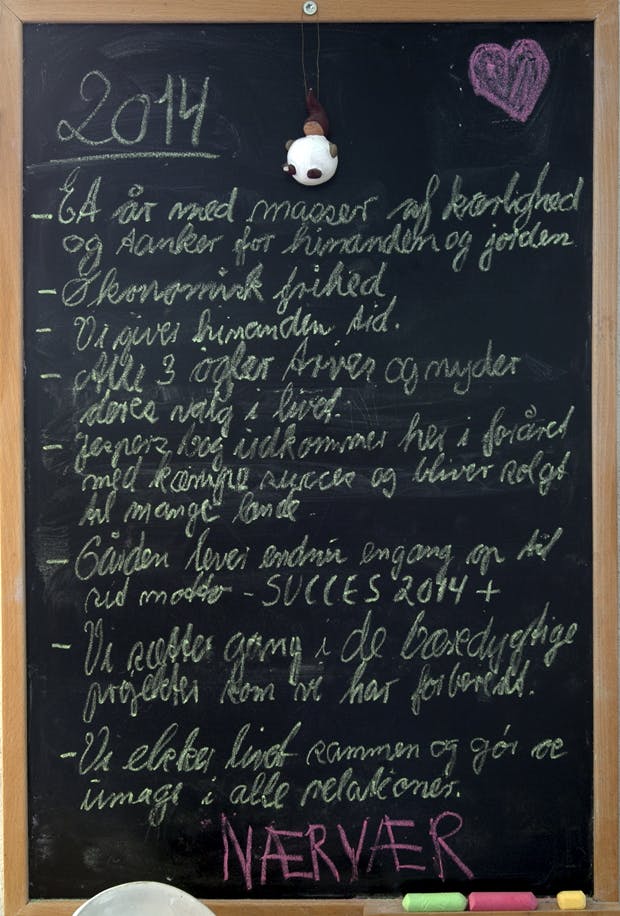 2014
- Et år med masser af kærlighed
og tanker for hinanden og jorden
- Økonomisk frihed
- Vi giver hinanden tid.
- Alle 3 øgler trives og nyder
deres valg i livet.
- Jespers bog udkommer her i foråret
med kæmpe succes og bliver solgt
til mange lande
- Gården lever endnu engang op til
sit motto - SUCCES 2014 +
- Vi sætter gang i de bæredygtige
projekter som vi har forberedt.
- Vi elsker livet sammen og gør os
umage i alle relationer.
NÆRVÆR